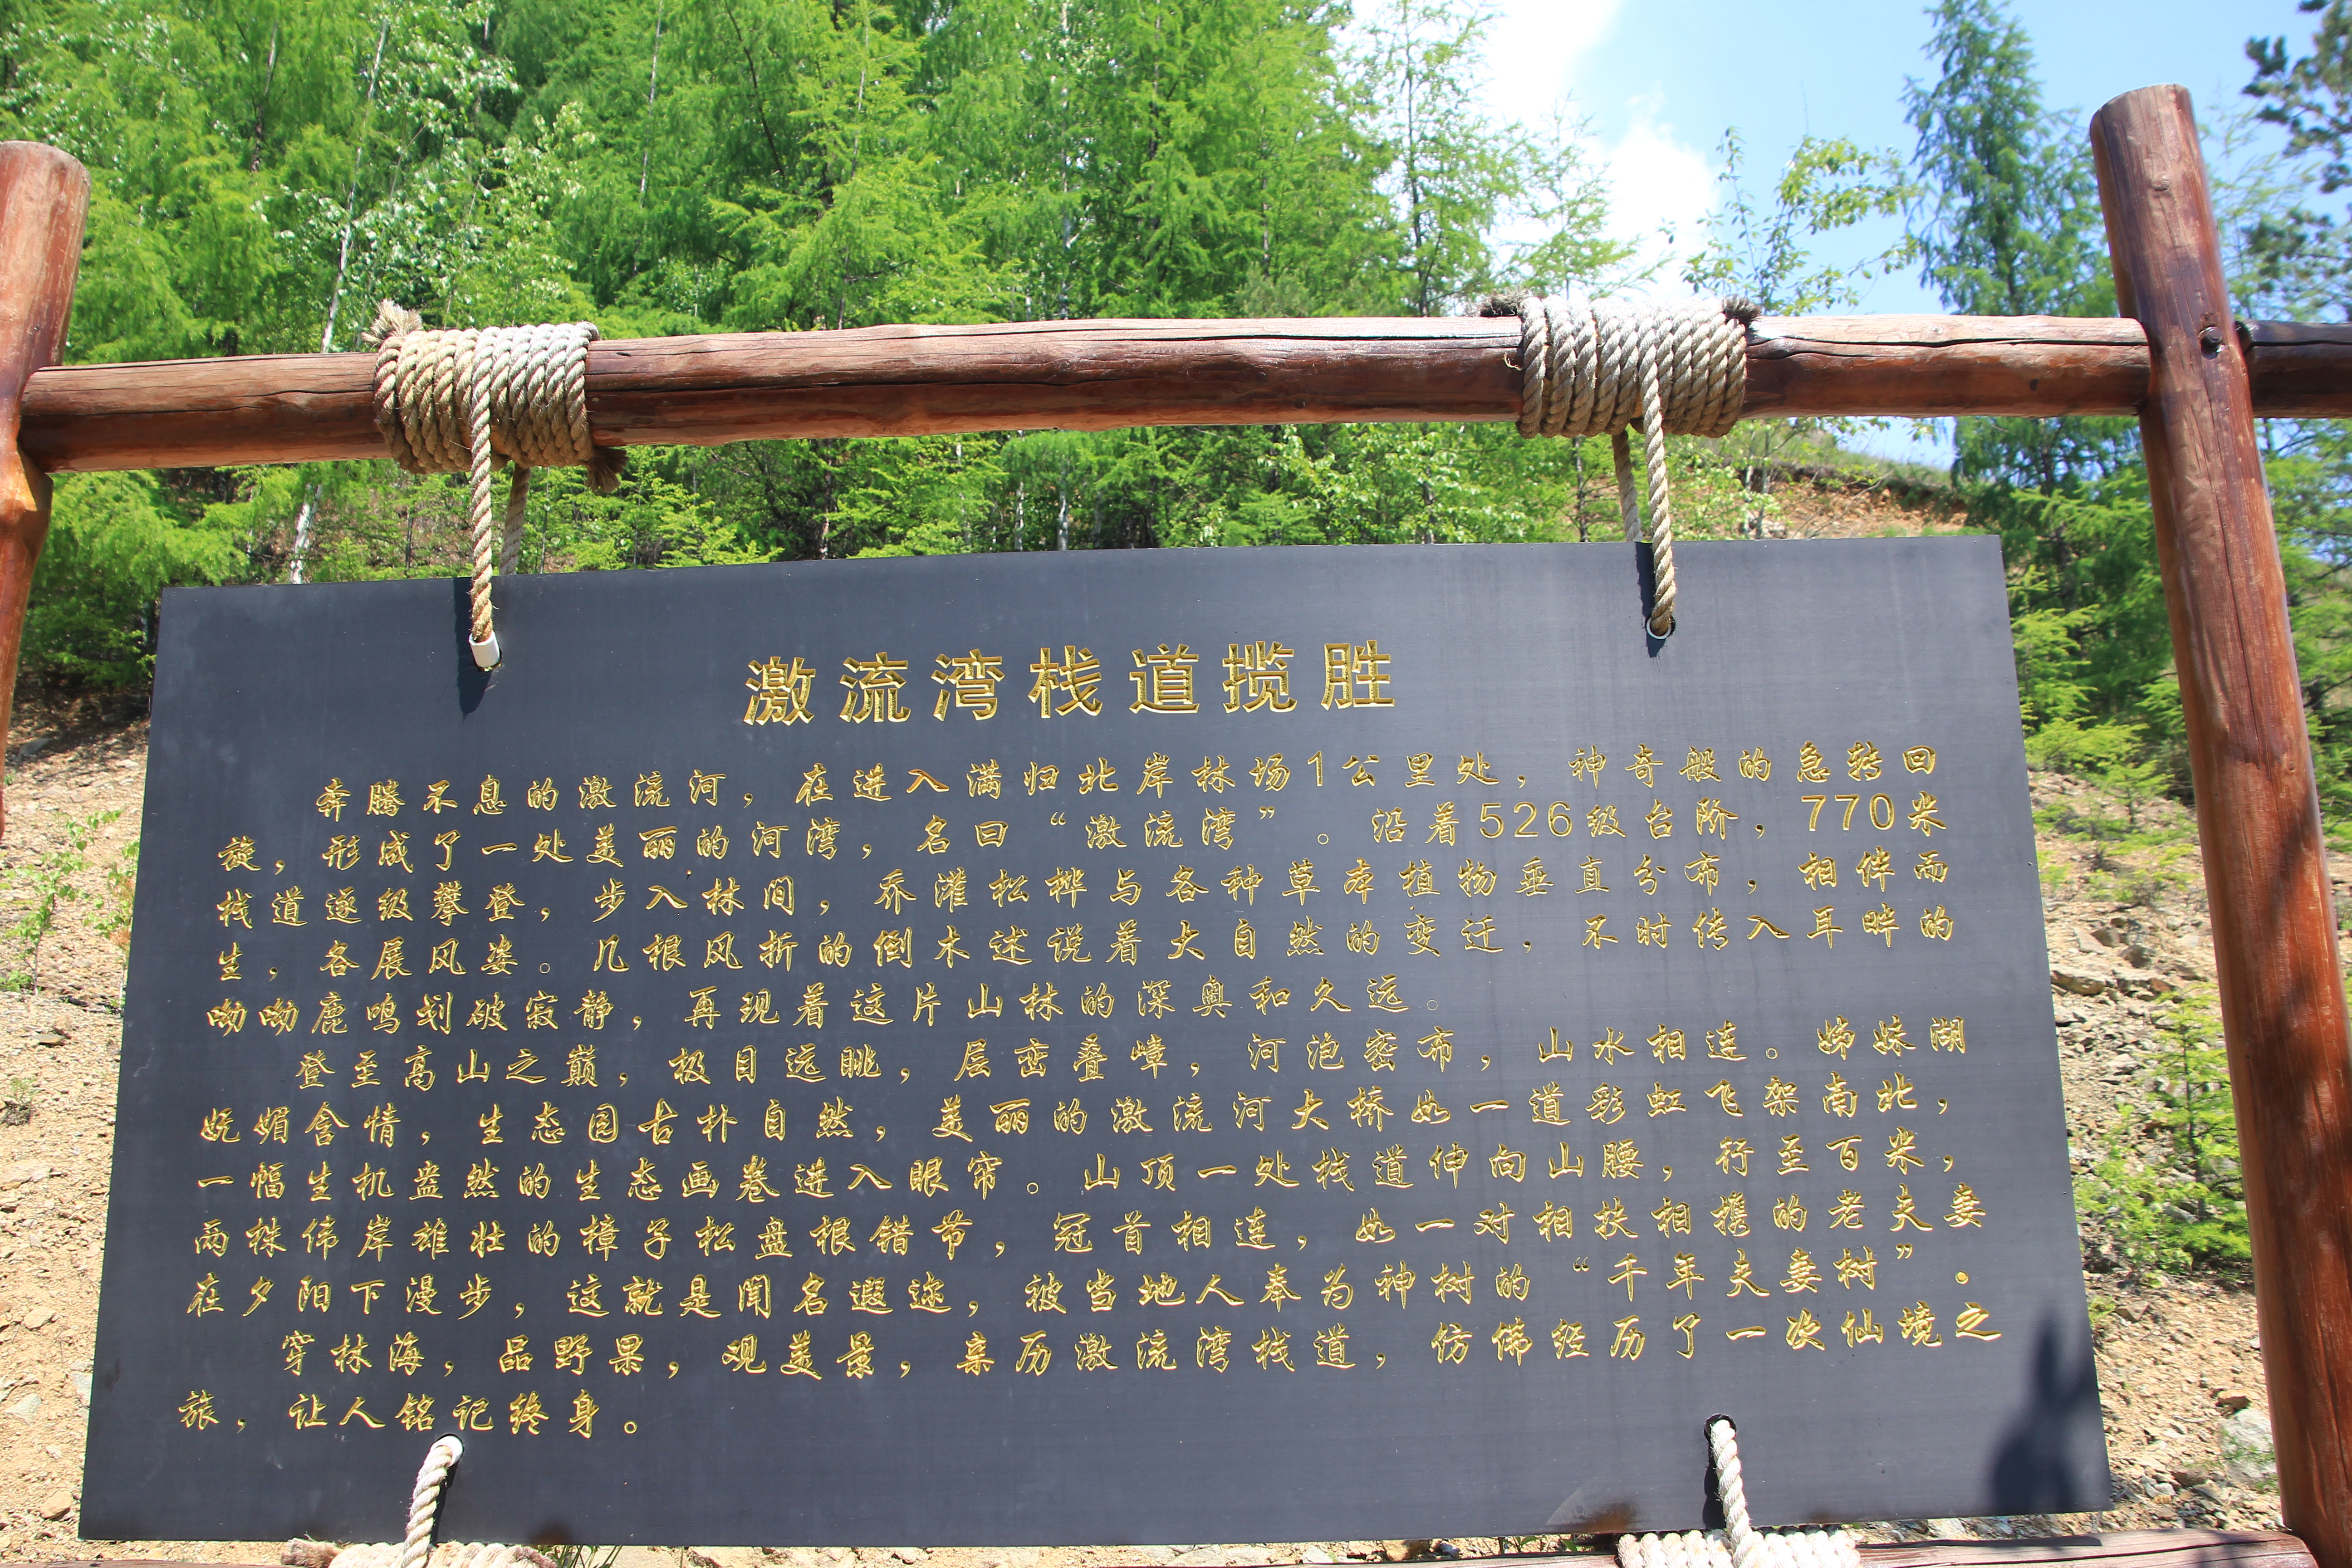 激流湾栈道揽胜
奔腾不息的激流河，在进入满归北岸林场1公里处，神奇般的急转回
旋，形成了一处美丽的河湾，名曰“激流湾”。沿着526级台阶，770米
栈道逐级攀登，步入林间，乔灌松桦与各种草本植物垂直分布，相伴而
生，各展风姿。几根风折的倒木述说着大自然的变迁，不时传入耳畔的
呦呦鹿鸣划破寂静，再现着这片山林的深奥和久远。
登至高山之巅，极目远眺，层峦叠嶂，河泡密布，山水相连。姊妹湖
妩媚含情，生态园古朴自然，美丽的激流河大桥如一道彩虹飞架南北，
一幅生机盎然的生态画卷进入眼帘。山顶一处栈道伸向山腰，行至百米，
两株伟岸雄壮的樟子松盘根错节，冠首相连，如一对相扶相携的老夫妻
在夕阳下漫步，这就是闻名遐迩，被当地人奉为神树的“千年夫妻树”。
穿林海，品野果，观美景，亲历激流湾栈道，仿佛经历了一次仙境之
旅，让人铭记终身。